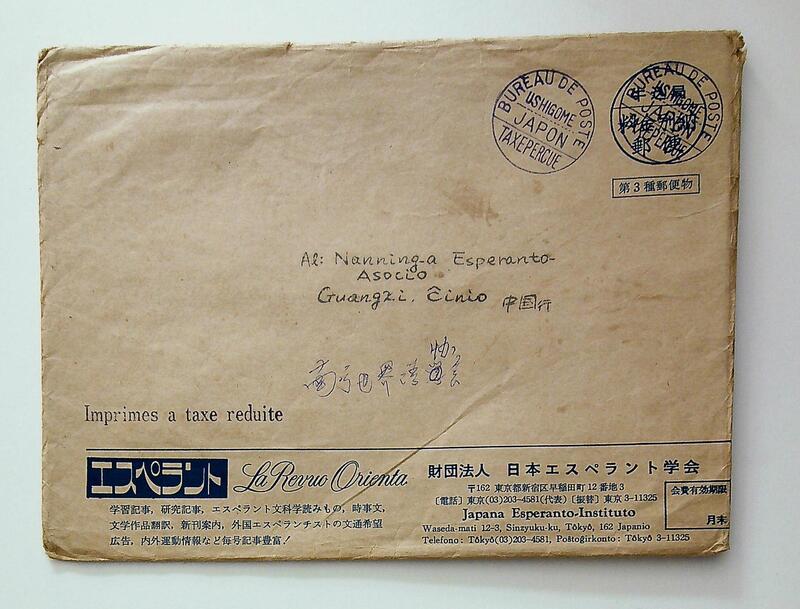 BUREAU DE POSTE
USHIGOME
JAPON
TAXEPERCUE
BUREAU DE POSTE
USHIGOME
JAPON
第3種郵便物
Al: Nanning-a Esperanto-
Asocio
Guangxi, Ĉinio 中国行
世界语
Imprimes a taxe reduite
エスペラント La Revuo Orienta
学習記事, 研究記事, エスペラント文科学読みもの, 時事文,
文学作品翻訳, 新刊案内, 外国エスペランチストの文通希望
広告, 内外運動情報など毎号記事豊富!
財団法人 日本エスペラント学会
〒162 東京都新宿区早稲田町12番地3
〔電話〕東京(03)203-4581(代表)〔振替〕東京3-11325
Japana Esperanto-Instituto
Waseda-mati 12-3, Sinzyuku-ku, Tôkyô, 162 Japanio
Telefono: Tôkyô(03)203-4581, Poŝtoĝirkonto: Tôkyô 3-11325
会費有効期限
月末